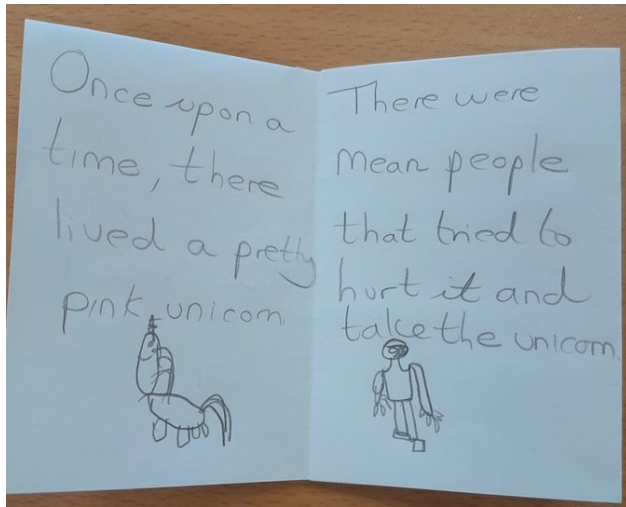 Once upon a
time, there
lived a pretty
pink unicorn
There were
mean people
that tried to
hurt it and
take the unicorn